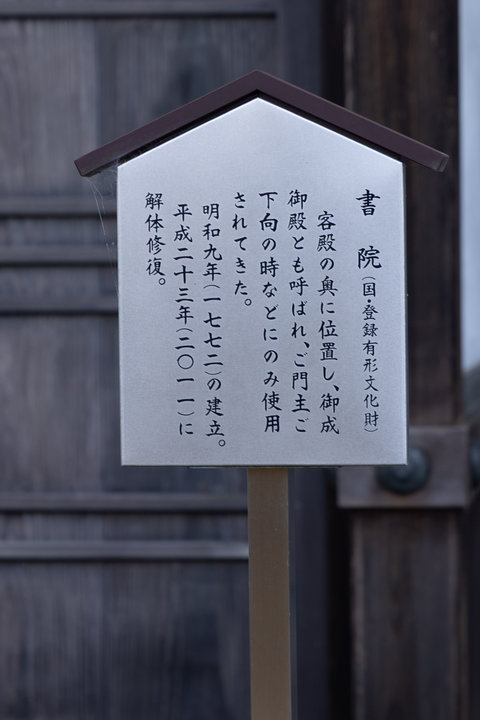 書院(国・登録有形文化財)
客殿の奥に位置し、御成
御殿とも呼ばれ、ご門主ご
下向の時などにのみ使用
されてきた。
明和九年(一七七二)の建立。
平成二十三年(二〇一一)に
解体修復。